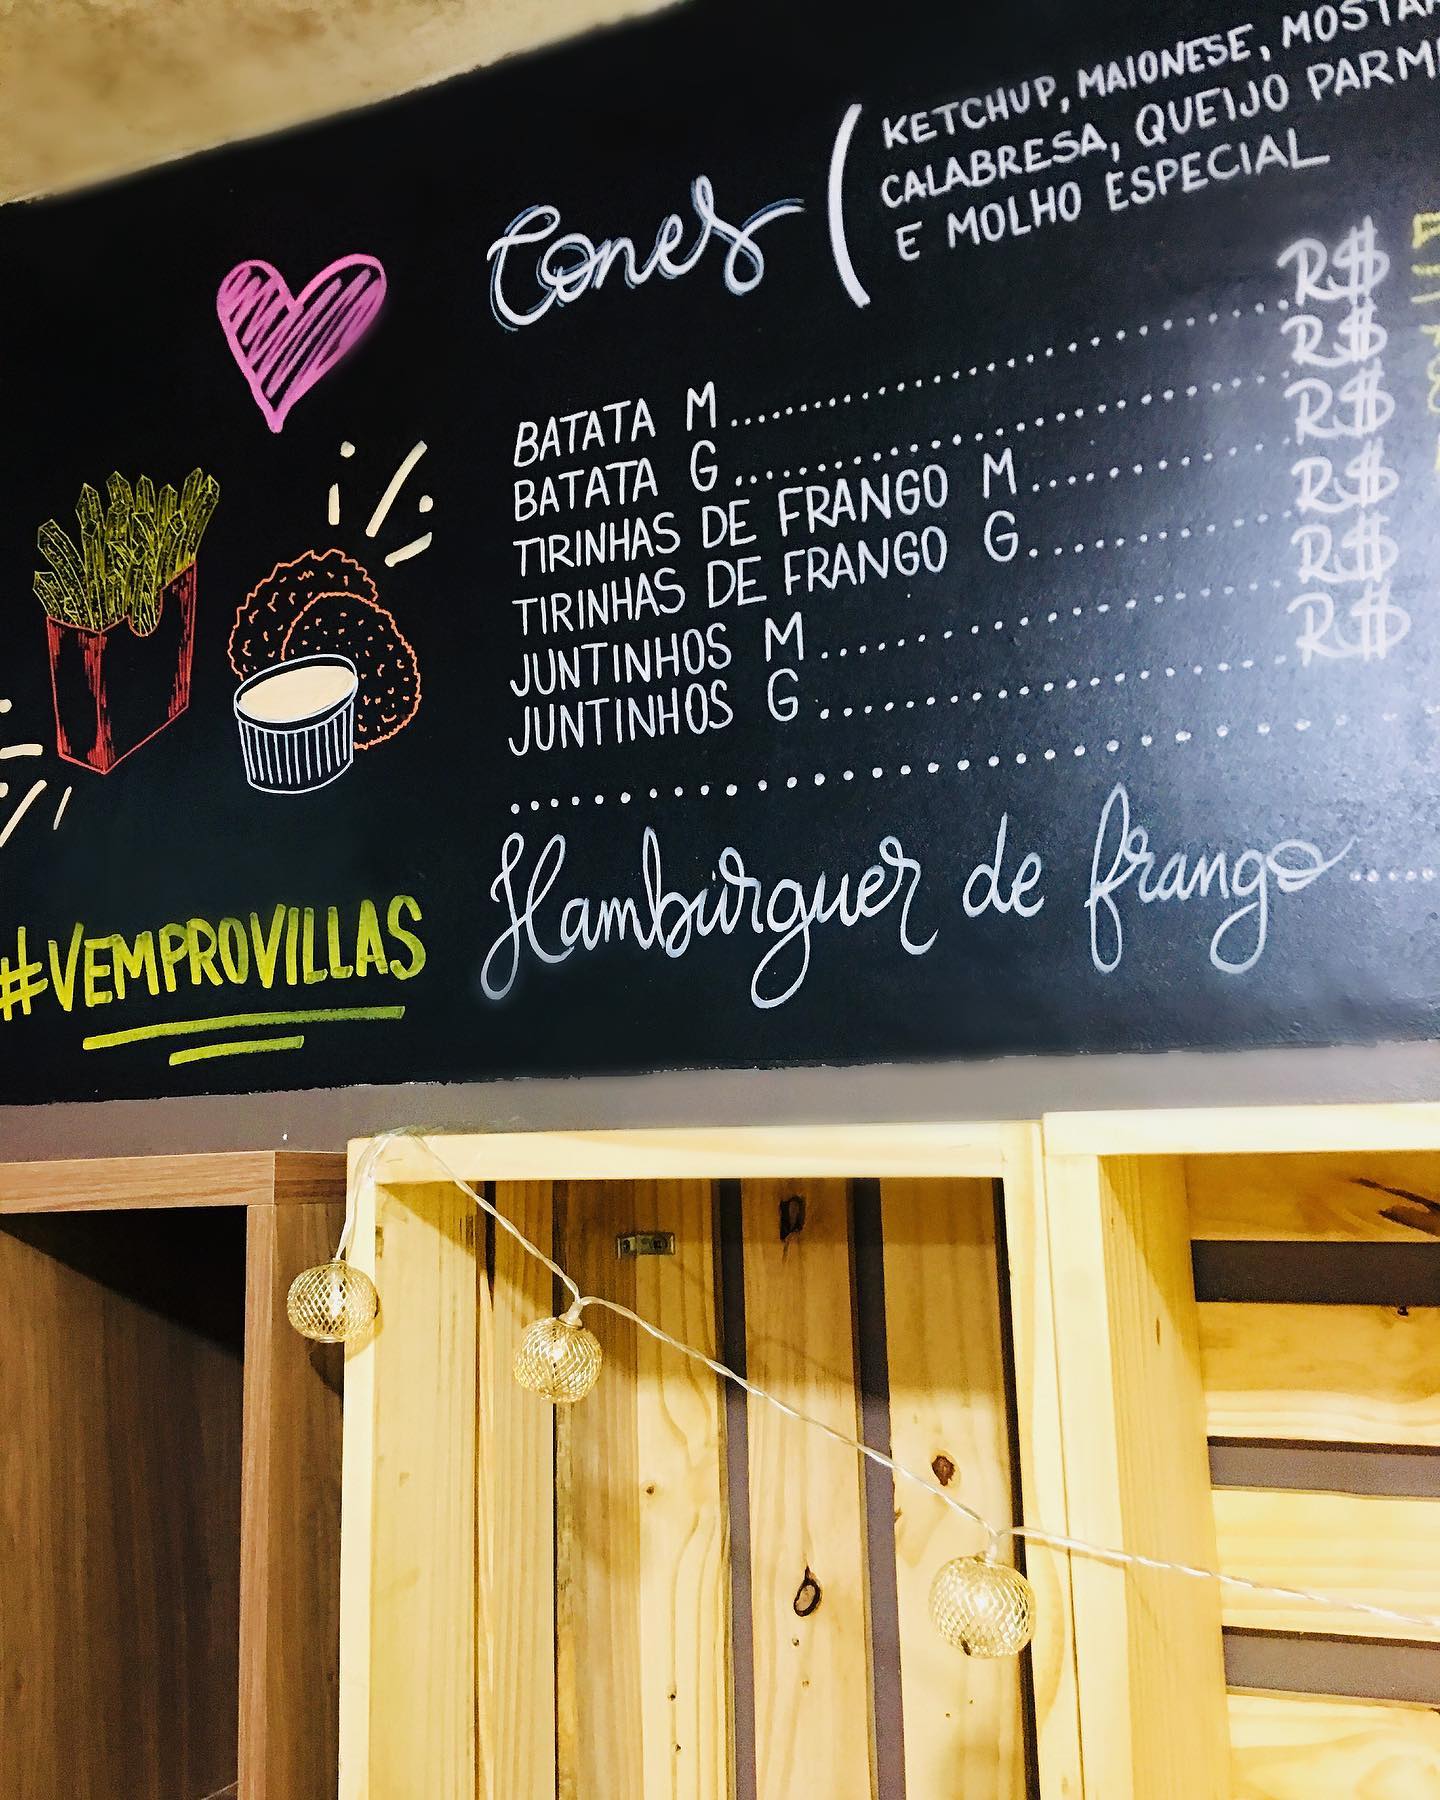 Cones ( KETCHUP, MAIONESE,
CALABRESA, QUEIJO
E MOLHO ESPECIAL
BATATA M.................... R$
BATATA G.................... R$
TIRINHAS DE FRANGO M.......... R$
TIRINHAS DE FRANGO G.......... R$
JUNTINHOS M.................... R$
JUNTINHOS G.................... R$
Hamburguer de frango.....
#VEMPROVILLAS